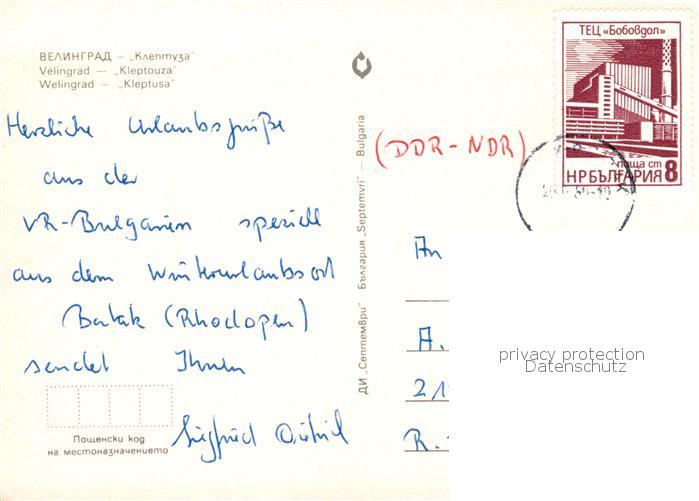 ВЕЛИНГРАД – „Клептуза"
Velingrad – „Kleptouza"
Welingrad – „Kleptusa"
Herzliche Urlaubsgrüße
aus der
VR-Bulgarien speziell
aus dem Winterurlaubsort
Batak (Rhodopen)
sendet Ihnen
Siegfried
Пощенски код
на местоназначението
ДИ „Септември" България „Septemvri" – Bulgaria
(DDR-NDR)
ТЕЦ «Бобовдол»
поща ст
НРБЪЛГАРИЯ 8
An
A.
21
R.
privacy protection
Datenschutz